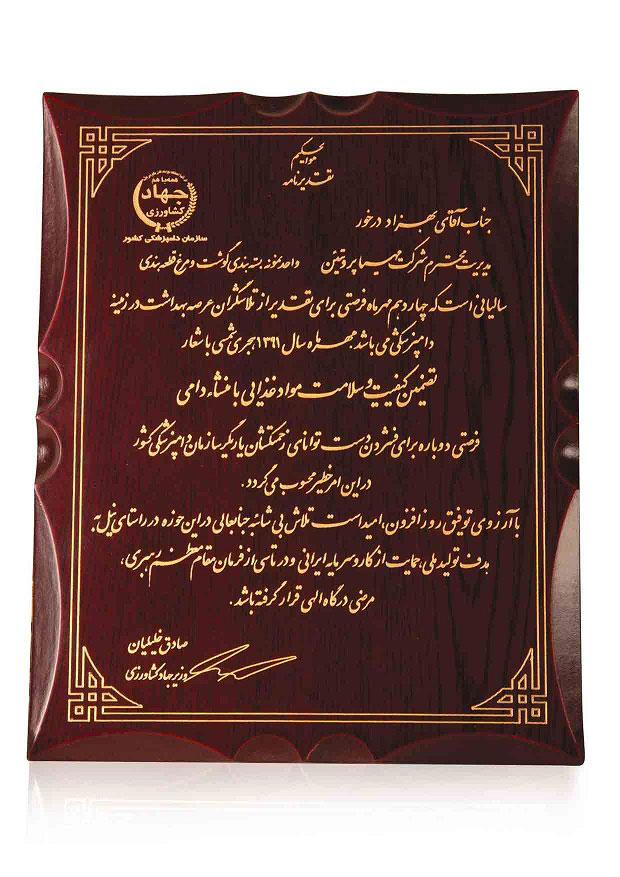 هوالحکیم
تقدیرنامه
همه با هم
جهاد
کشاورزی
سازمان دامپزشکی کشور
جناب آقای بهزاد درخور
مدیریت محترم شرکت مهیا پروتئین واحد نمونه بسته بندی گوشت و مرغ قطعه بندی
سالیانی است که چهاردهم مهرماه فرصتی برای تقدیر از تلاشگران عرصه بهداشت در زمینه
دامپزشکی می باشد. مهرماه سال ۱۳۹۱ هجری شمسی با شعار
تضمین کیفیت و سلامت مواد غذایی با منشاء دامی
فرصتی دوباره برای فشردن دست توانای زحمتکشان یاریگر سازمان دامپزشکی کشور
در این امر خطیر محسوب می گردد.
با آرزوی توفیق روزافزون، امید است تلاش بی شائبه جنابعالی در این حوزه در راستای نیل به
هدف تولید ملی، حمایت از کار و سرمایه ایرانی و در تاسی از فرمان مقام معظم رهبری،
مرضی درگاه الهی قرار گرفته باشد.
صادق خلیلیان
وزیر جهاد کشاورزی